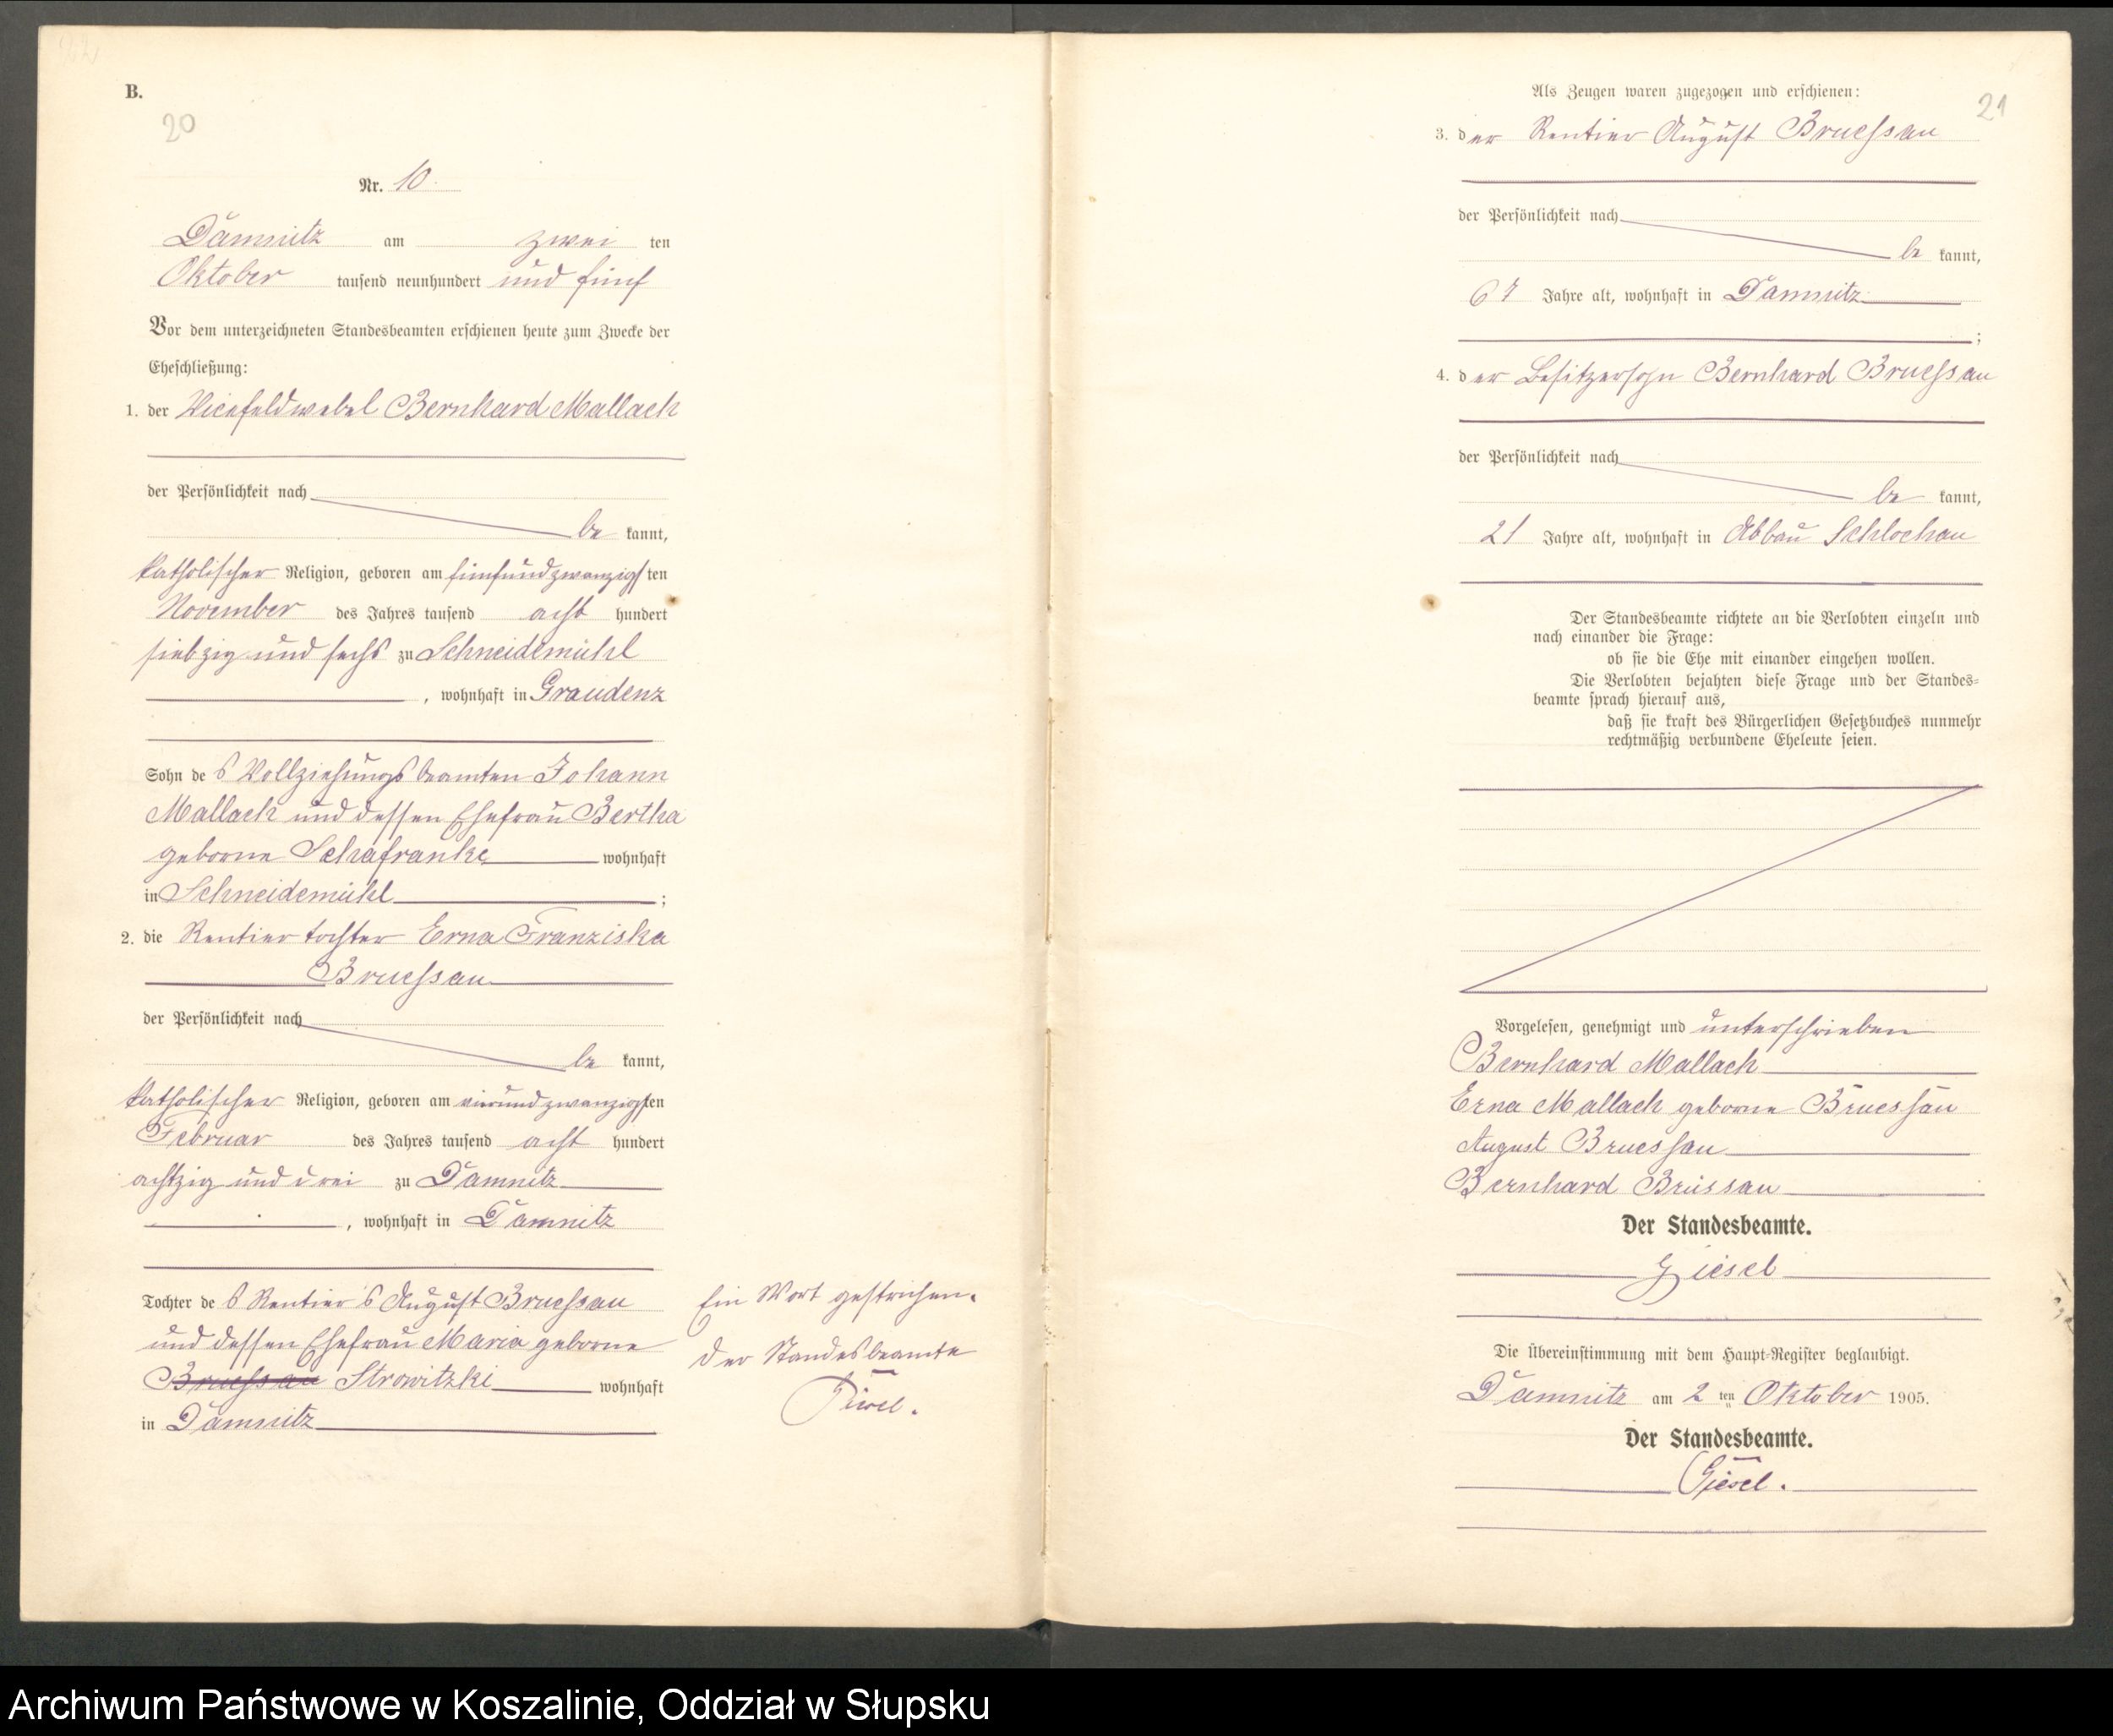 B.
20
Nr. 10.
Damnitz am zwei ten
Oktober tausend neunhundert und fünf
Vor dem unterzeichneten Standesbeamten erschienen heute zum Zwecke der
Eheschließung:
1. der Vicefeldwebel Bernhard Mallach
der Persönlichkeit nach
be kannt,
katholischer Religion, geboren am fünfundzwanzigsten
November des Jahres tausend acht hundert
siebzig und sechs zu Schneidemühl
, wohnhaft in Graudenz
Sohn des Vollziehungsbeamten Johann
Mallach und dessen Ehefrau Bertha
geborne Schafranke wohnhaft
in Schneidemühl ;
2. die Rentiertochter Erna Franziska
Bruessau
der Persönlichkeit nach
be kannt,
katholischer Religion, geboren am vierundzwanzigsten
Februar des Jahres tausend acht hundert
achtzig und drei zu Damnitz
, wohnhaft in Damnitz
Tochter des Rentiers August Bruessau
und dessen Ehefrau Maria geborne
Bruessau Strowitzki wohnhaft
in Damnitz
Ein Wort gestrichen.
Der Standesbeamte
Giesel.
21
Als Zeugen waren zugezogen und erschienen:
3. der Rentier August Bruessau
der Persönlichkeit nach
be kannt,
67 Jahre alt, wohnhaft in Damnitz
;
4. der Besitzersohn Bernhard Bruessau
der Persönlichkeit nach
be kannt,
21 Jahre alt, wohnhaft in Abbau Schlochau
Der Standesbeamte richtete an die Verlobten einzeln und
nach einander die Frage:
ob sie die Ehe mit einander eingehen wollen.
Die Verlobten bejahten diese Frage und der Standes=
beamte sprach hierauf aus,
daß sie kraft des Bürgerlichen Gesetzbuches nunmehr
rechtmäßig verbundene Eheleute seien.
Vorgelesen, genehmigt und unterschrieben
Bernhard Mallach
Erna Mallach geborne Bruessau
August Bruessau
Bernhard Brüssau
Der Standesbeamte.
Giesel
Die Übereinstimmung mit dem Haupt-Register beglaubigt.
Damnitz am 2 ten Oktober 1905.
Der Standesbeamte.
Giesel.
Archiwum Państwowe w Koszalinie, Oddział w Słupsku